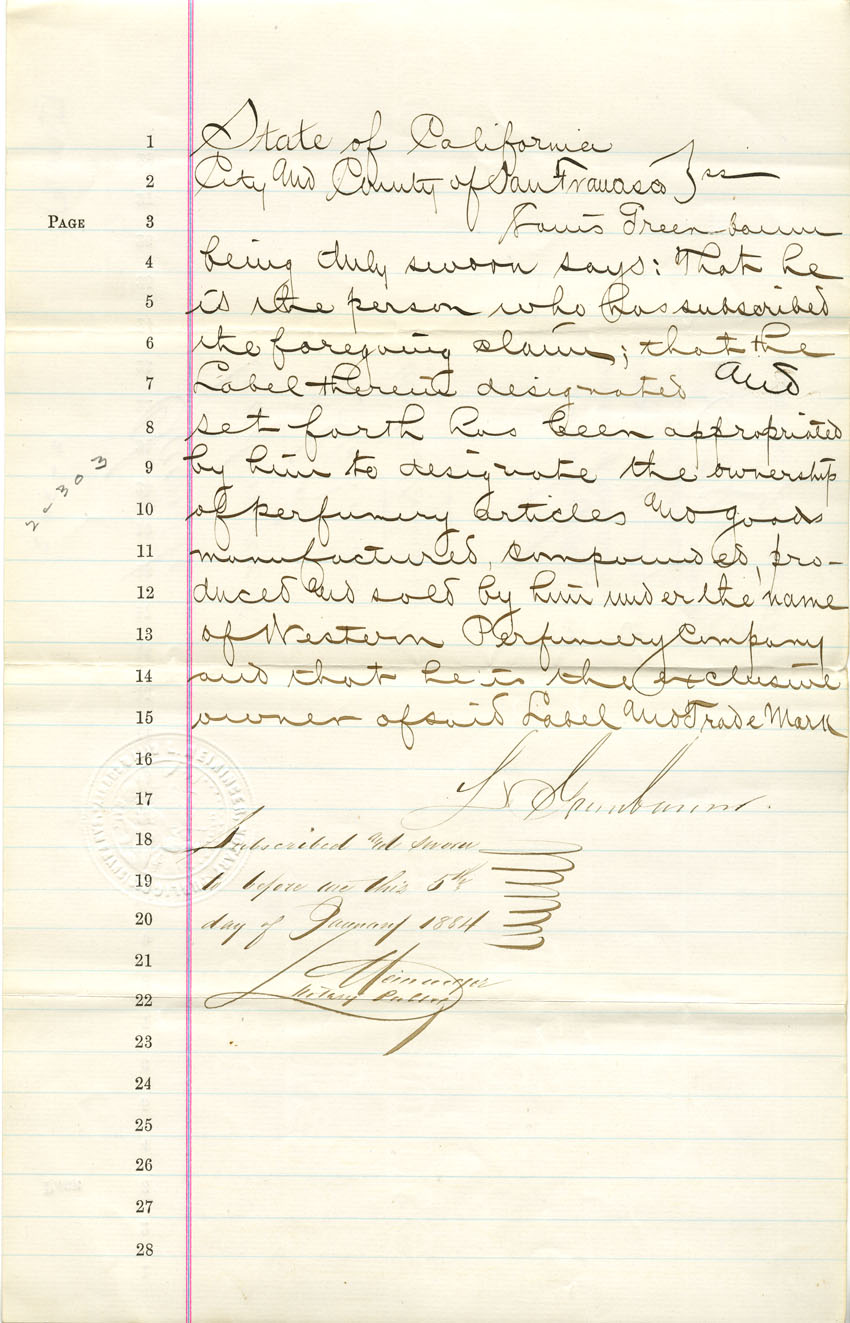 1 State of California
2 City and County of San Francisco } ss
PAGE 3 Louis Greenbaum
4 being duly sworn says: That he
5 is the person who has subscribed
6 the foregoing claim; that the
7 Label therein designated and
8 set forth has been appropriated
9 by him to designate the ownership
10 of perfumery articles and goods
11 manufactured, compounded, pro-
12 duced and sold by him under the name
13 of Western Perfumery Company
14 and that he is the exclusive
15 owner of said Label and Trade Mark
16
17 L Greenbaum.
18 Subscribed and sworn
19 to before me this 5th
20 day of January 1884
21 L Meininger
22 Notary Public
23
24
25
26
27
28
303